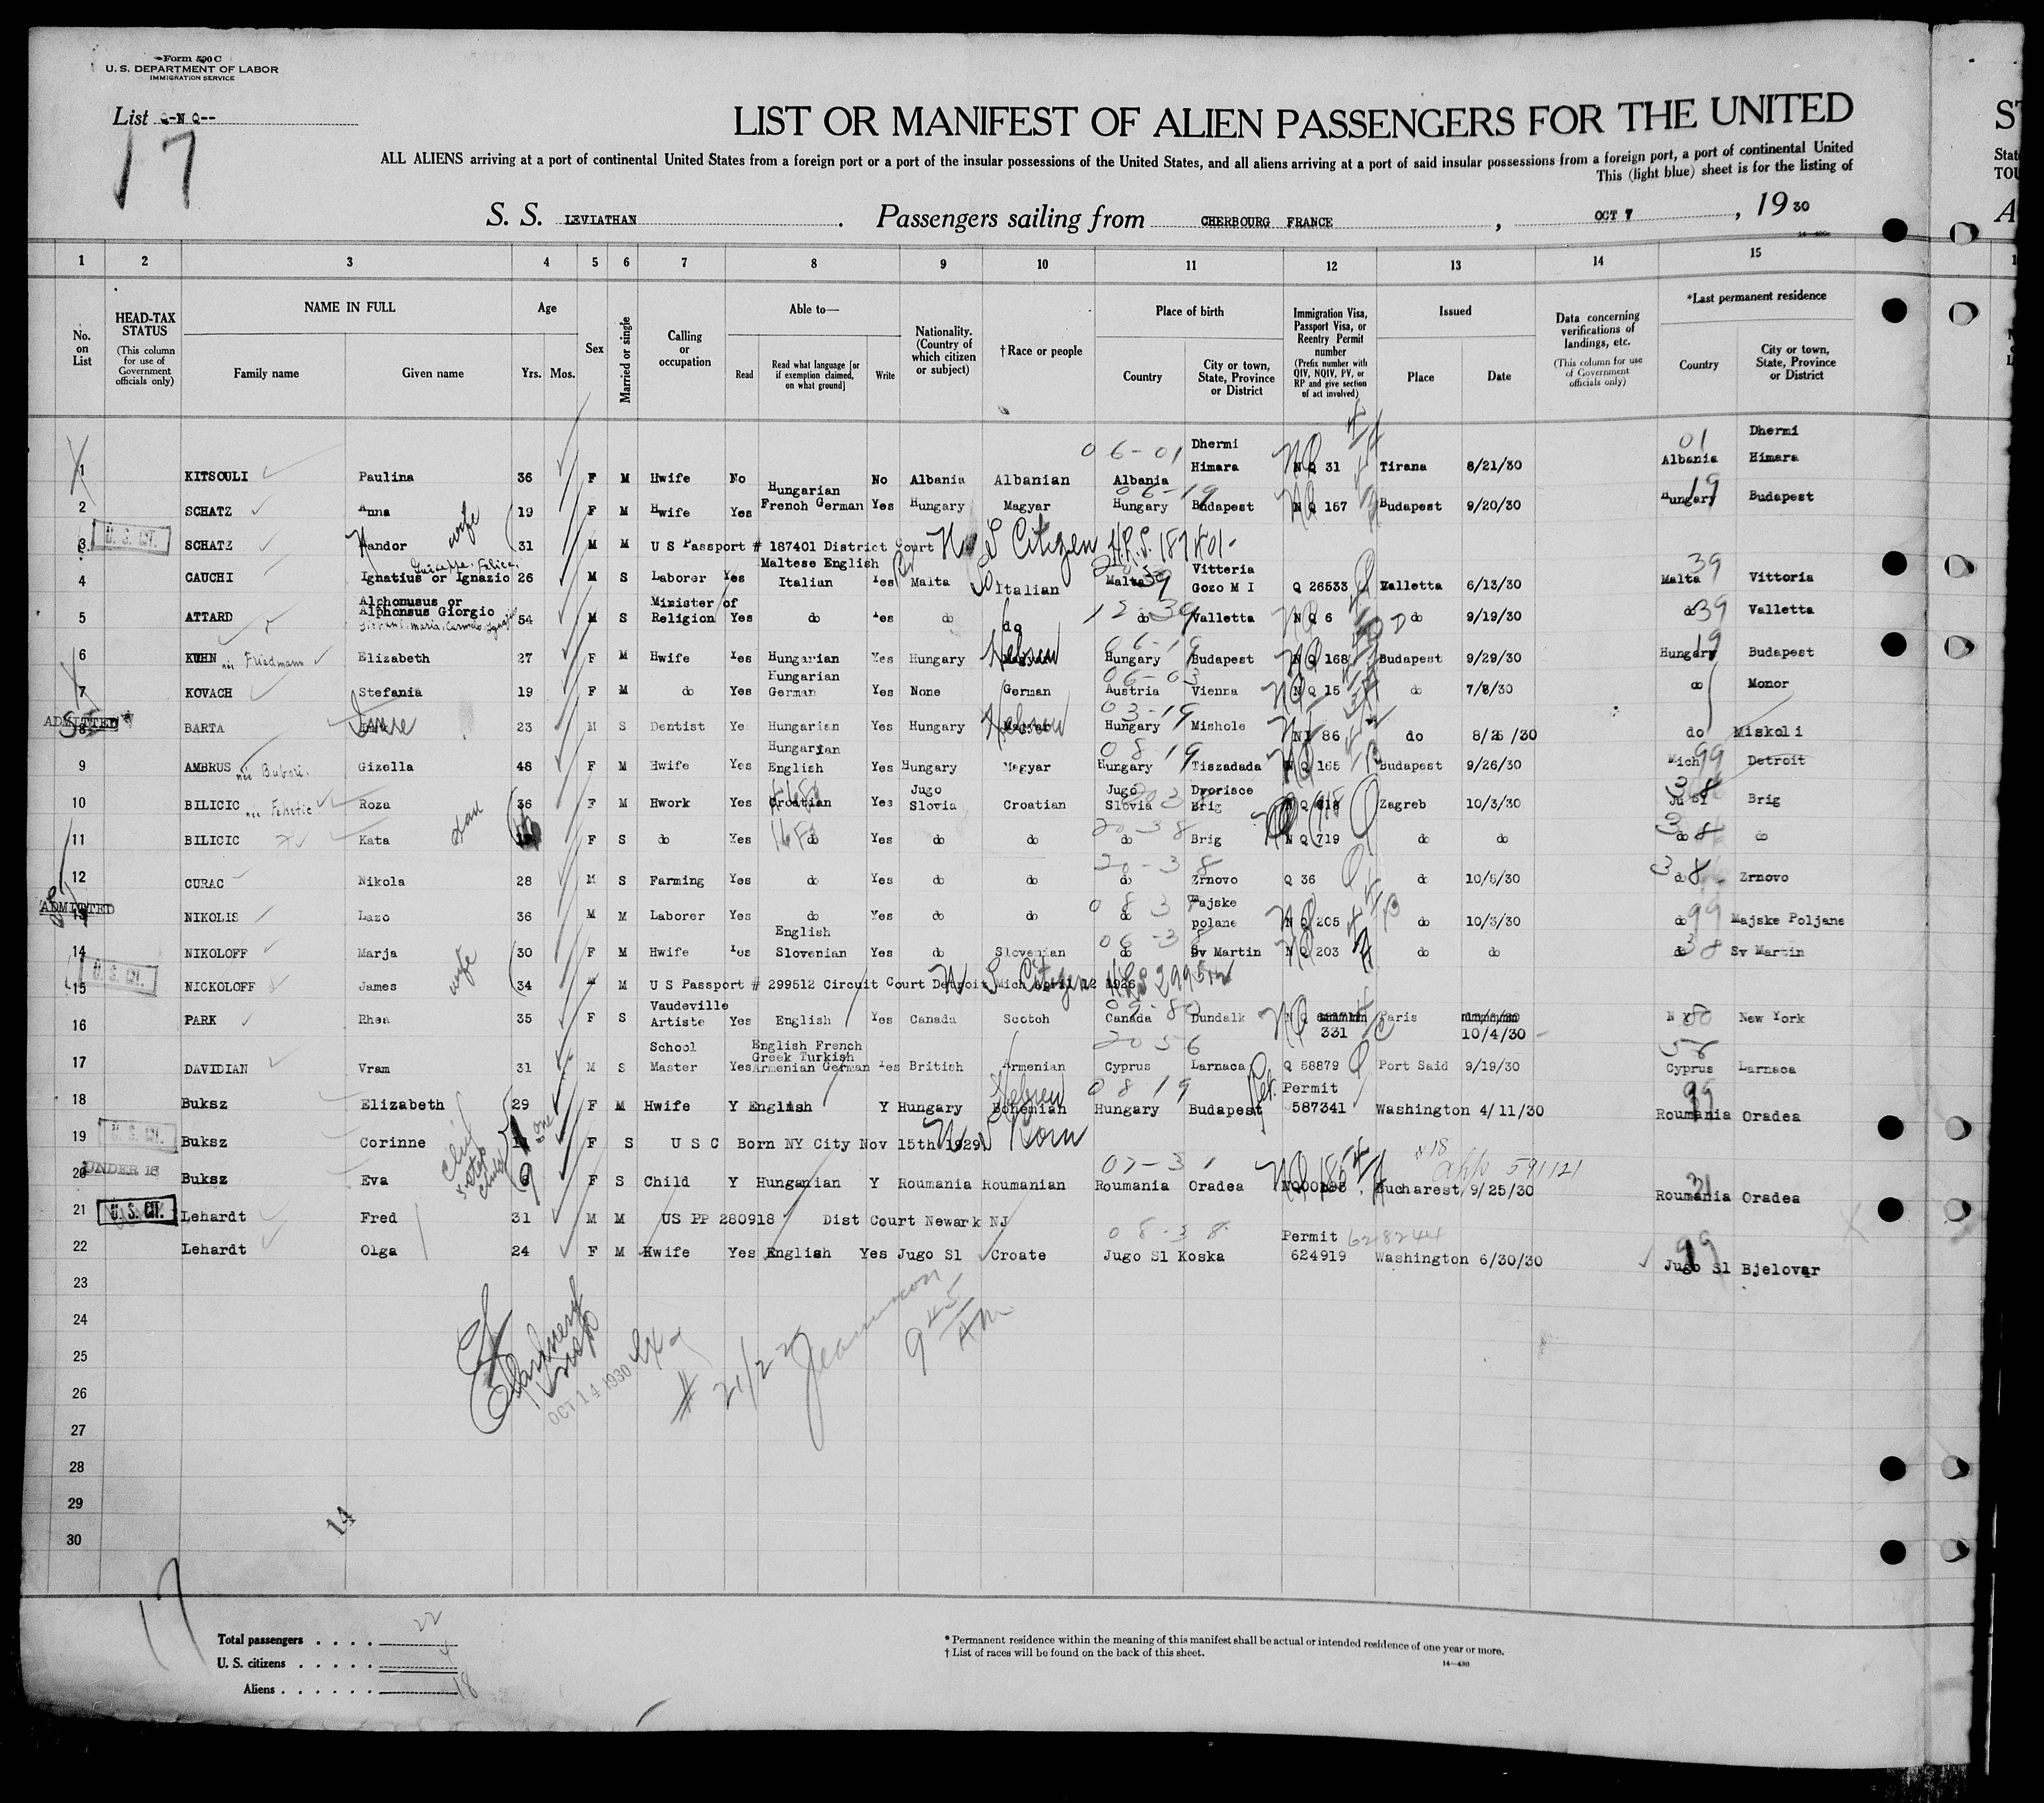 Form 500 C
U. S. DEPARTMENT OF LABOR
IMMIGRATION SERVICE
List Q-N Q--
17
LIST OR MANIFEST OF ALIEN PASSENGERS FOR THE UNITED
ALL ALIENS arriving at a port of continental United States from a foreign port or a port of the insular possessions of the United States, and all aliens arriving at a port of said insular possessions from a foreign port, a port of continental United
This (light blue) sheet is for the listing of
S. S. LEVIATHAN . Passengers sailing from CHERBOURG FRANCE , OCT 7 , 19 30
1 2 3 4 5 6 7 8 9 10 11 12 13 14 15
No. on List
HEAD-TAX STATUS (This column for use of Government officials only)
NAME IN FULL
Family name Given name
Age Yrs. Mos.
Sex
Married or single
Calling or occupation
Able to—
Read Read what language [or if exemption claimed, on what ground] Write
Nationality. (Country of which citizen or subject)
†Race or people
Place of birth
Country City or town, State, Province or District
Immigration Visa, Passport Visa, or Reentry Permit number (Prefix number with QIV, NQIV, PV, or RP and give section of act involved)
Issued
Place Date
Data concerning verifications of landings, etc. (This column for use of Government officials only)
*Last permanent residence
Country City or town, State, Province or District
1 KITSOULI Paulina 36 F M Hwife No No Albania Albanian 06-01 Albania Dhermi Himara N Q 31 Tirana 8/21/30 01 Albania Dhermi Himara
2 SCHATZ Anna wife 19 F M Hwife Yes Hungarian French German Yes Hungary Magyar 06-19 Hungary Budapest N Q 157 Budapest 9/20/30 Hungary 19 Budapest
3 U. S. CIT. SCHATZ Nandor 31 M M U S Passport # 187401 District Court U S Citizen H.R.S. 187401-
4 CAUCHI Ignatius or Ignazio Guiseppe Felice 26 M S Laborer Yes Maltese English Italian Yes Malta Italian Malta 39 Vitteria Gozo M I Q 26533 Valletta 6/13/30 39 Malta Vittoria
5 ATTARD Alphonusus or Alphonsus Giorgio Maria Carmelo 54 M S Minister of Religion Yes do Yes do do 12-39 do Valletta N Q 6 do 9/19/30 do 39 Valletta
6 KUHN née Friedmann Elizabeth 27 F M Hwife Yes Hungarian Yes Hungary Hebrew 06-19 Hungary Budapest N Q 168 Budapest 9/29/30 Hungary 19 Budapest
7 KOVACH Stefania 19 F M do Yes Hungarian German Yes None German 06-03 Austria Vienna N Q 15 do 7/8/30 do Monor
ADMITTED 8 BARTA Imre 23 M S Dentist Ye Hungarian Yes Hungary Hebrew 03-19 Hungary Mishole 86 do 8/26/30 do Miskoli
9 AMBRUS née Gizella 48 F M Hwife Yes Hungarian English Yes Hungary Magyar 08 19 Hungary Tiszadada N Q 165 Budapest 9/26/30 Mich 99 Detroit
10 BILICIC née Roza 36 F M Hwork Yes Croatian Yes Jugo Slovia Croatian Jugo Slovia Dvorisce Brig N Q 718 Zagreb 10/3/30 38 Ju Sl Brig
11 BILICIC Kata F S do Yes do Yes do do 20-38 do Brig N Q 719 do do 38 do do
12 CURAC Nikola 28 M S Farming Yes do Yes do do 20-38 do Zrnovo Q 36 do 10/5/30 38 do Zrnovo
ADMITTED 13 NIKOLIS Lazo 36 M M Laborer Yes do Yes do do do Majske polane N Q 205 do 10/3/30 do 99 Majske Poljane
14 NIKOLOFF Marja wife 30 F M Hwife Yes English Slovenian Yes do Slovenian 06-38 do Sv Martin N Q 203 do do do 38 Sv Martin
U. S. CIT. 15 NICKOLOFF James 34 M M U S Passport # 299512 Circuit Court Detroit Mich April 12 1926 U S Citizen
16 PARK Rhea 35 F S Vaudeville Artiste Yes English Yes Canada Scotch Canada Dundalk N Q 331 Paris 10/4/30 N Y New York
17 DAVIDIAN Vram 31 M S School Master Yes English French Greek Turkish Armenian German Yes British Armenian 20 56 Cyprus Larnaca Q 58879 Port Said 9/19/30 56 Cyprus Larnaca
18 Buksz Elizabeth 29 F M Hwife Y English Y Hungary Hebrew Bohemian 08 19 Hungary Budapest Permit 587341 Washington 4/11/30 99 Roumania Oradea
19 U. S. CIT. Buksz Corinne one F S U S C Born NY City Nov 15th 1929 U S Born
20 UNDER 16 Buksz Eva 9 F S Child Y Hungarian Y Roumania Roumanian Roumania Oradea NQ 185 Bucharest 9/25/30 31 Roumania Oradea
21 U. S. CIT. Lehardt Fred 31 M M US PP 280918 Dist Court Newark NJ
22 Lehardt Olga 24 F M Hwife Yes English Yes Jugo Sl Croate 08-38 Jugo Sl Koska Permit 624919 628244 Washington 6/30/30 99 Jugo Sl Bjelovar
23
24
25
26
27
28
29
30
OCT 14 1930
# 21/22
9 45 AM
14
17
Total passengers . . . . 22
U. S. citizens . . . . . 4
Aliens . . . . . . 18
* Permanent residence within the meaning of this manifest shall be actual or intended residence of one year or more.
† List of races will be found on the back of this sheet.
14—430